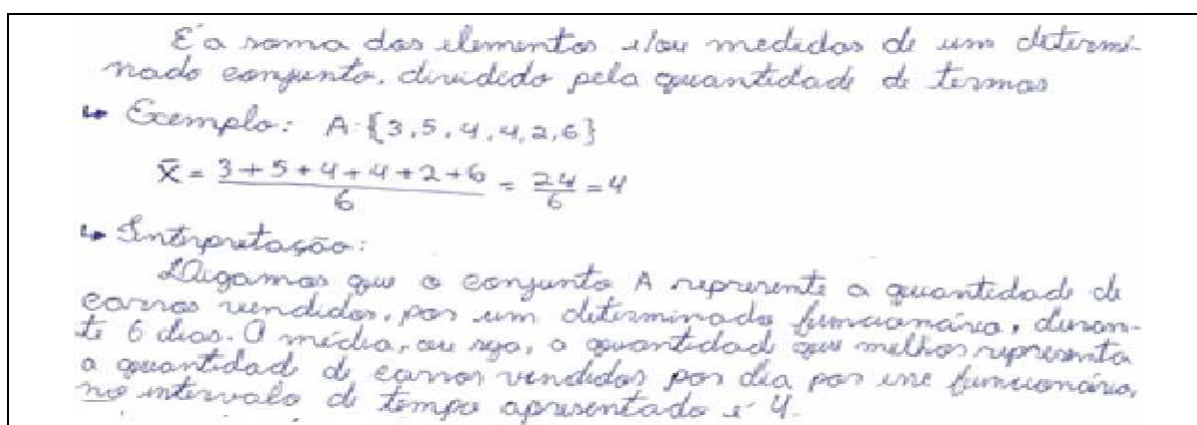 É a soma dos elementos e/ou medidas de um determi-
nado conjunto, dividido pela quantidade de termos
↳ Exemplo: A:{3,5,4,4,2,6}
X̄ = (3+5+4+4+2+6)/6 = 24/6 = 4
↳ Interpretação:
Digamos que o conjunto A represente a quantidade de
carros vendidos, por um determinado funcionário, duran-
te 6 dias. A média, ou seja, a quantidade que melhor representa
a quantidade de carros vendidos por dia por esse funcionário,
no intervalo de tempo apresentado é 4.